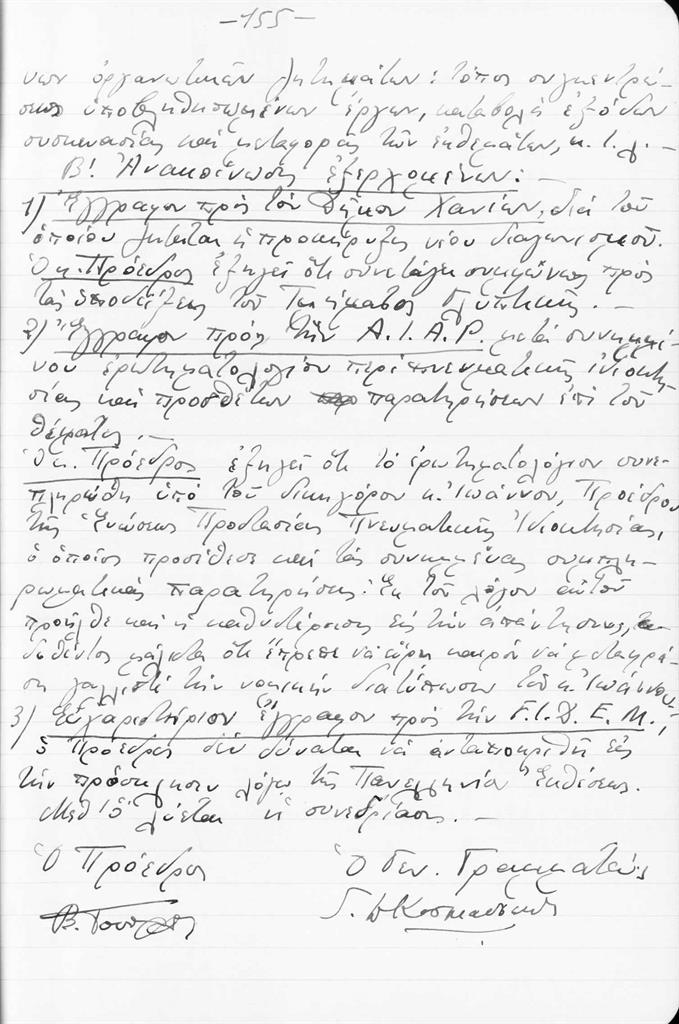 -155-
νων ὀργανωτικῶν ζητημάτων: τόπος συγκεντρώ-
σεως ὑποβληθησομένων ἔργων, καταβολή ἐξόδων
συσκευασίας καί μεταφορᾶς τῶν ἐκθεμάτων, κ.τ.λ. -
Β! Ἀνακοίνωσις ἐξερχομένων: -
1) Ἔγγραφον πρός τόν Δῆμον Χανίων, διά τοῦ
ὁποίου ζητεῖται ἡ προκήρυξις νέου διαγωνισμοῦ.
Ὁ κ. Πρόεδρος ἐξηγεῖ ὅτι συνετάγη συμφώνως πρός
τάς ὑποδείξεις τοῦ Τμήματος Γλυπτικῆς. -
2) Ἔγγραφον πρός τήν A.I.A.P. μετά συνημμέ-
νου ἐρωτηματολογίου περί πνευματικῆς ἰδιοκτη-
σίας καί προσθέτων παρατηρήσεων ἐπί τοῦ
θέματος. -
Ὁ κ. Πρόεδρος ἐξηγεῖ ὅτι τό ἐρωτηματολόγιον συνε-
πληρώθη ὑπό τοῦ δικηγόρου κ. Ἰωάννου, Προέδρου
τῆς Ἑνώσεως Προστασίας Πνευματικῆς Ἰδιοκτησίας,
ὁ ὁποῖος προσέθεσε καί τάς συνημμένας συμπλη-
ρωματικάς παρατηρήσεις. Ἐκ τοῦ λόγου αὐτοῦ
προῆλθε καί ἡ καθυστέρησις εἰς τήν ἀπάντησιν,
δοθέντος μάλιστα ὅτι ἔπρεπε νά εὕρη καιρόν νά μεταφρά-
ση γαλλιστί τήν νομικήν διατύπωσιν τοῦ κ. Ἰωάννου.
3) Εὐχαριστήριον ἔγγραφον πρός τήν F.I.D.E.M.,
ὁ Πρόεδρος δέν δύναται νά ἀνταποκριθῆ εἰς
τήν πρόσκλησιν λόγω τῆς Πανελληνίου Ἐκθέσεως.
Μεθ' ὅ λύεται ἡ συνεδρίασις. -
Ὁ Πρόεδρος Ὁ Γεν. Γραμματεύς